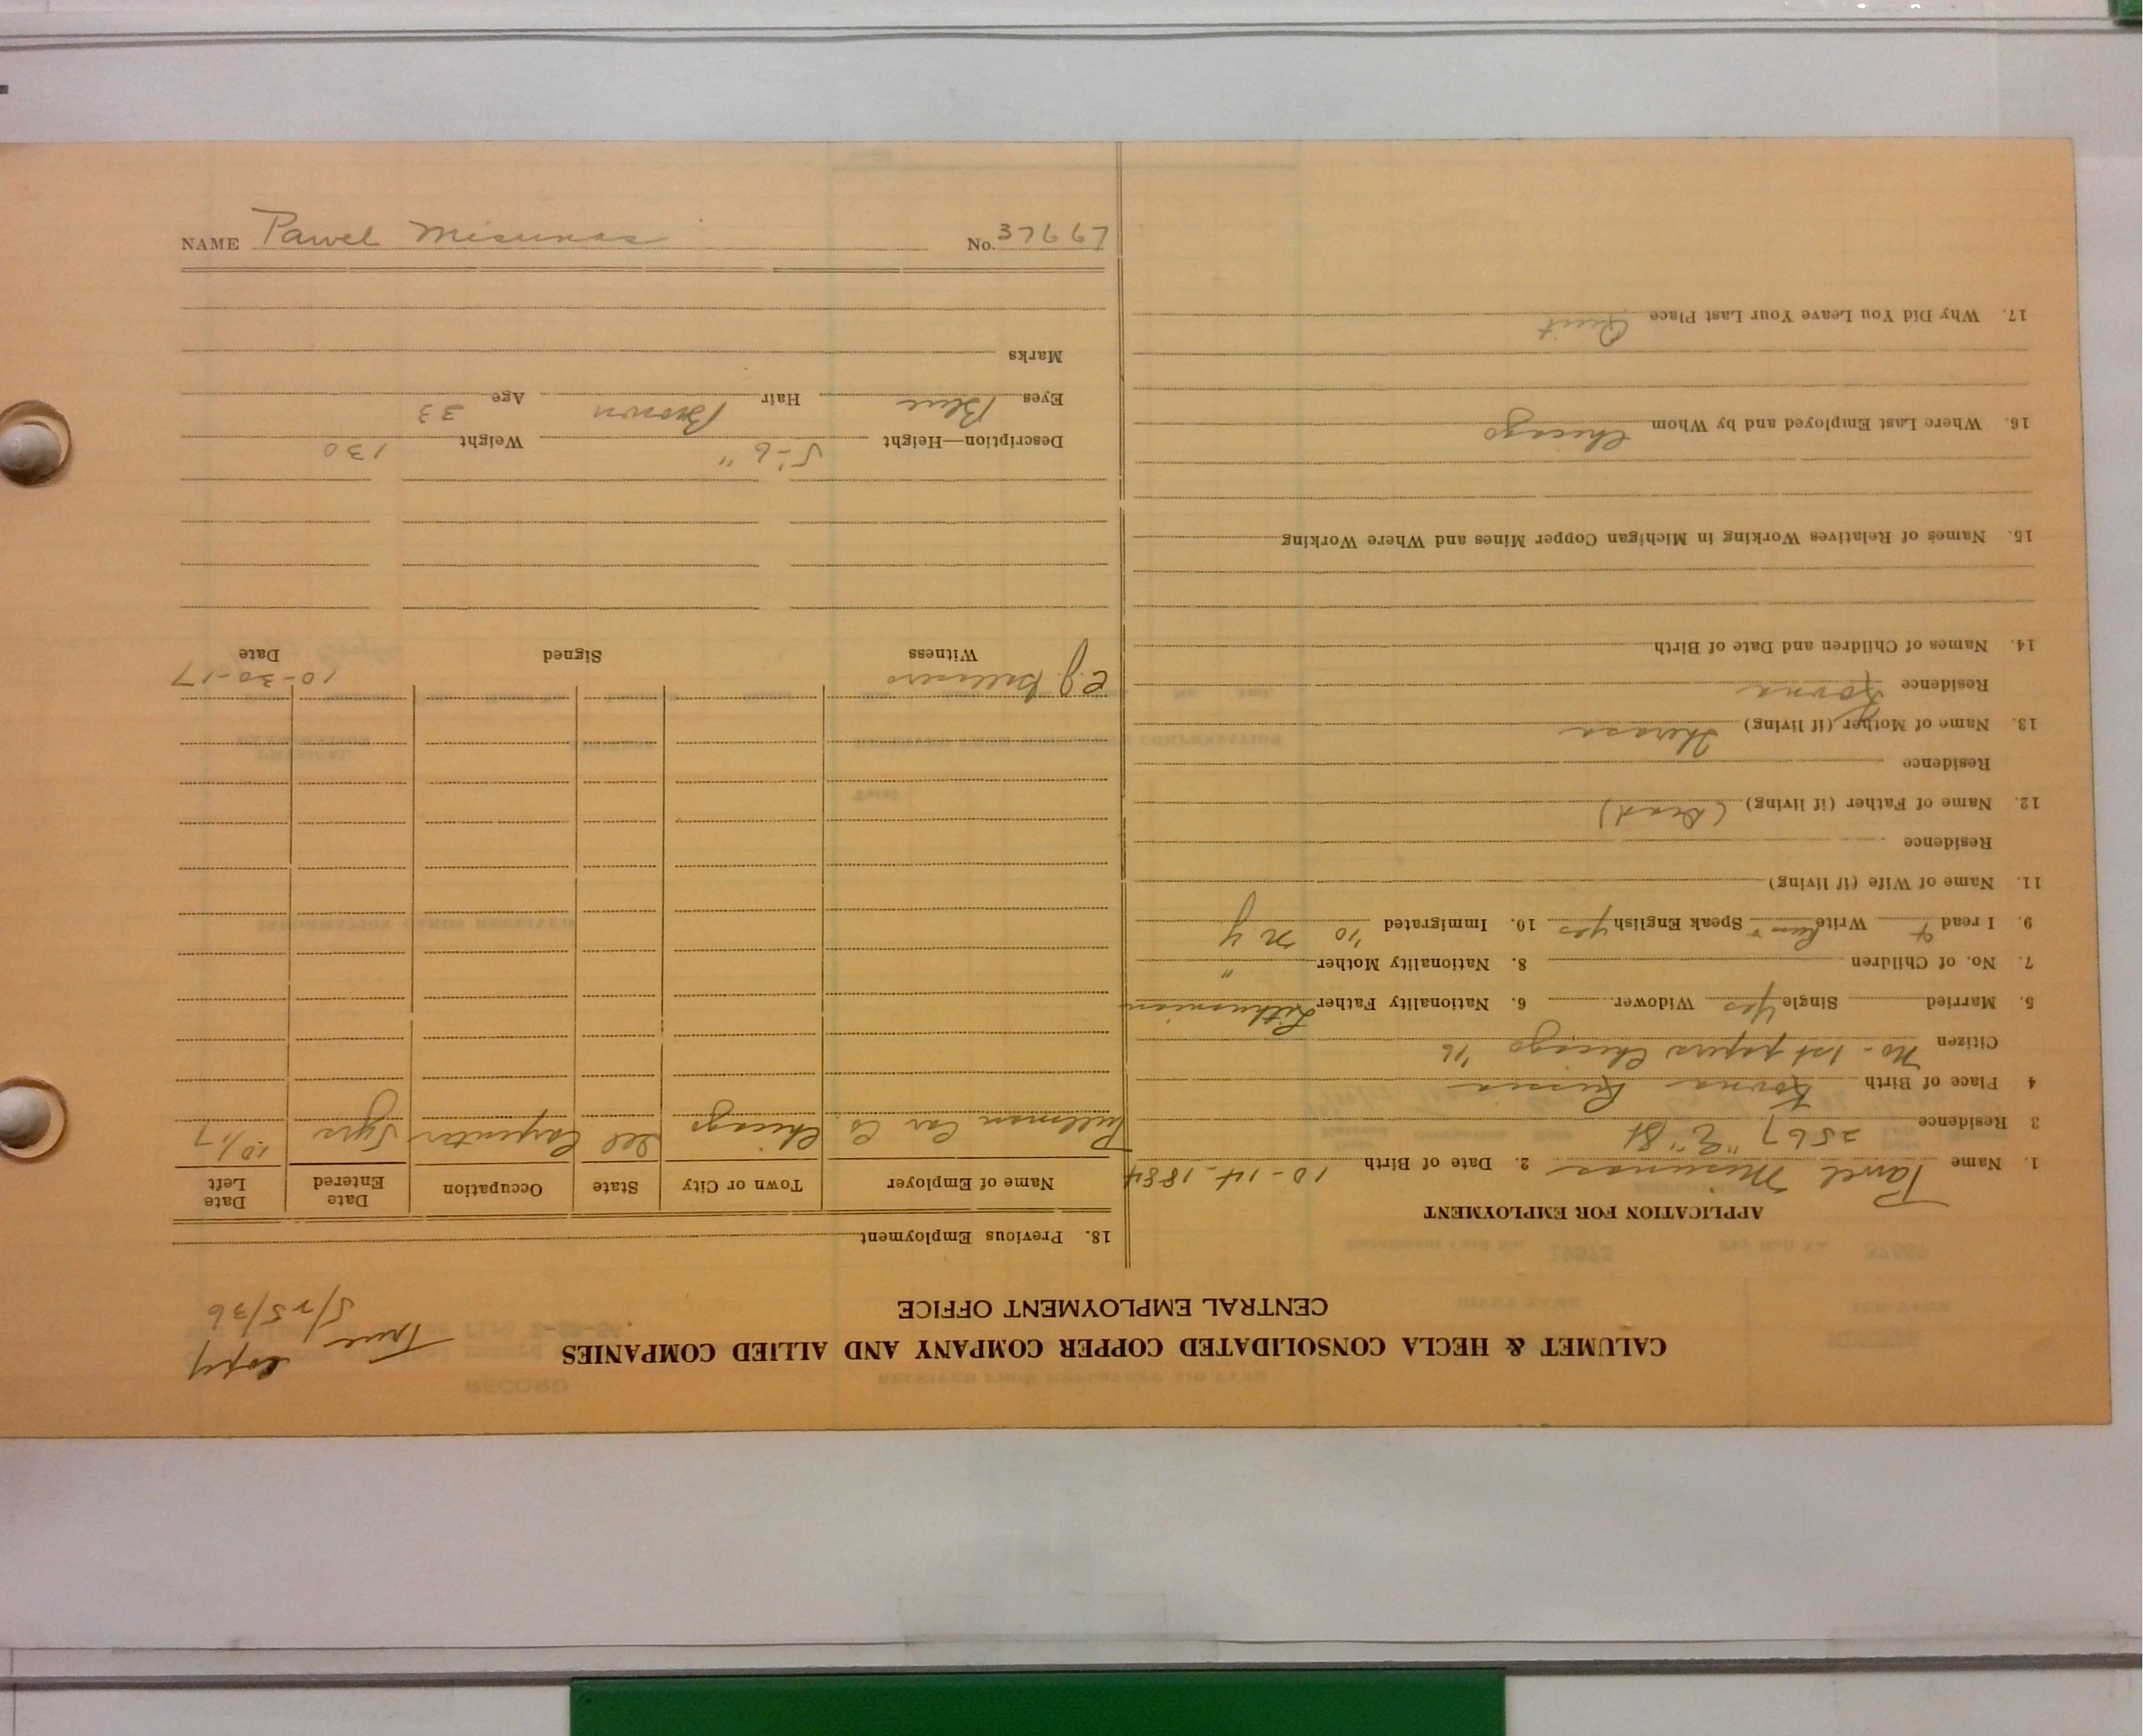 CALUMET & HECLA CONSOLIDATED COPPER COMPANY AND ALLIED COMPANIES
CENTRAL EMPLOYMENT OFFICE
True Copy
5/25/36
APPLICATION FOR EMPLOYMENT
1. Name Pawel Misunas 2. Date of Birth 10-14-1884
3 Residence 2567 "E" St
4 Place of Birth Kovna Russia
Citizen No - 1st papers Chicago '16
5. Married Single Yes Widower 6. Nationality Father Lithuanian
7. No. of Children 8. Nationality Mother "
9. I read & Write Speak English yes 10. Immigrated '10 N Y
11. Name of Wife (if living)
Residence
12. Name of Father (if living) (Dead)
Residence
13. Name of Mother (if living) Theresa
Residence Kovna
14. Names of Children and Date of Birth
15. Names of Relatives Working in Michigan Copper Mines and Where Working
16. Where Last Employed and by Whom Chicago
17. Why Did You Leave Your Last Place Quit
18. Previous Employment
Name of Employer Town or City State Occupation Date Entered Date Left
Pullman Car Co. Chicago Ill Carpenter 5yrs 10/17
C.J. 10-30-17
Witness Signed Date
Description—Height 5'-6" Weight 130
Eyes Blue Hair Brown Age 33
Marks
NAME Pawel Misunas No. 37667